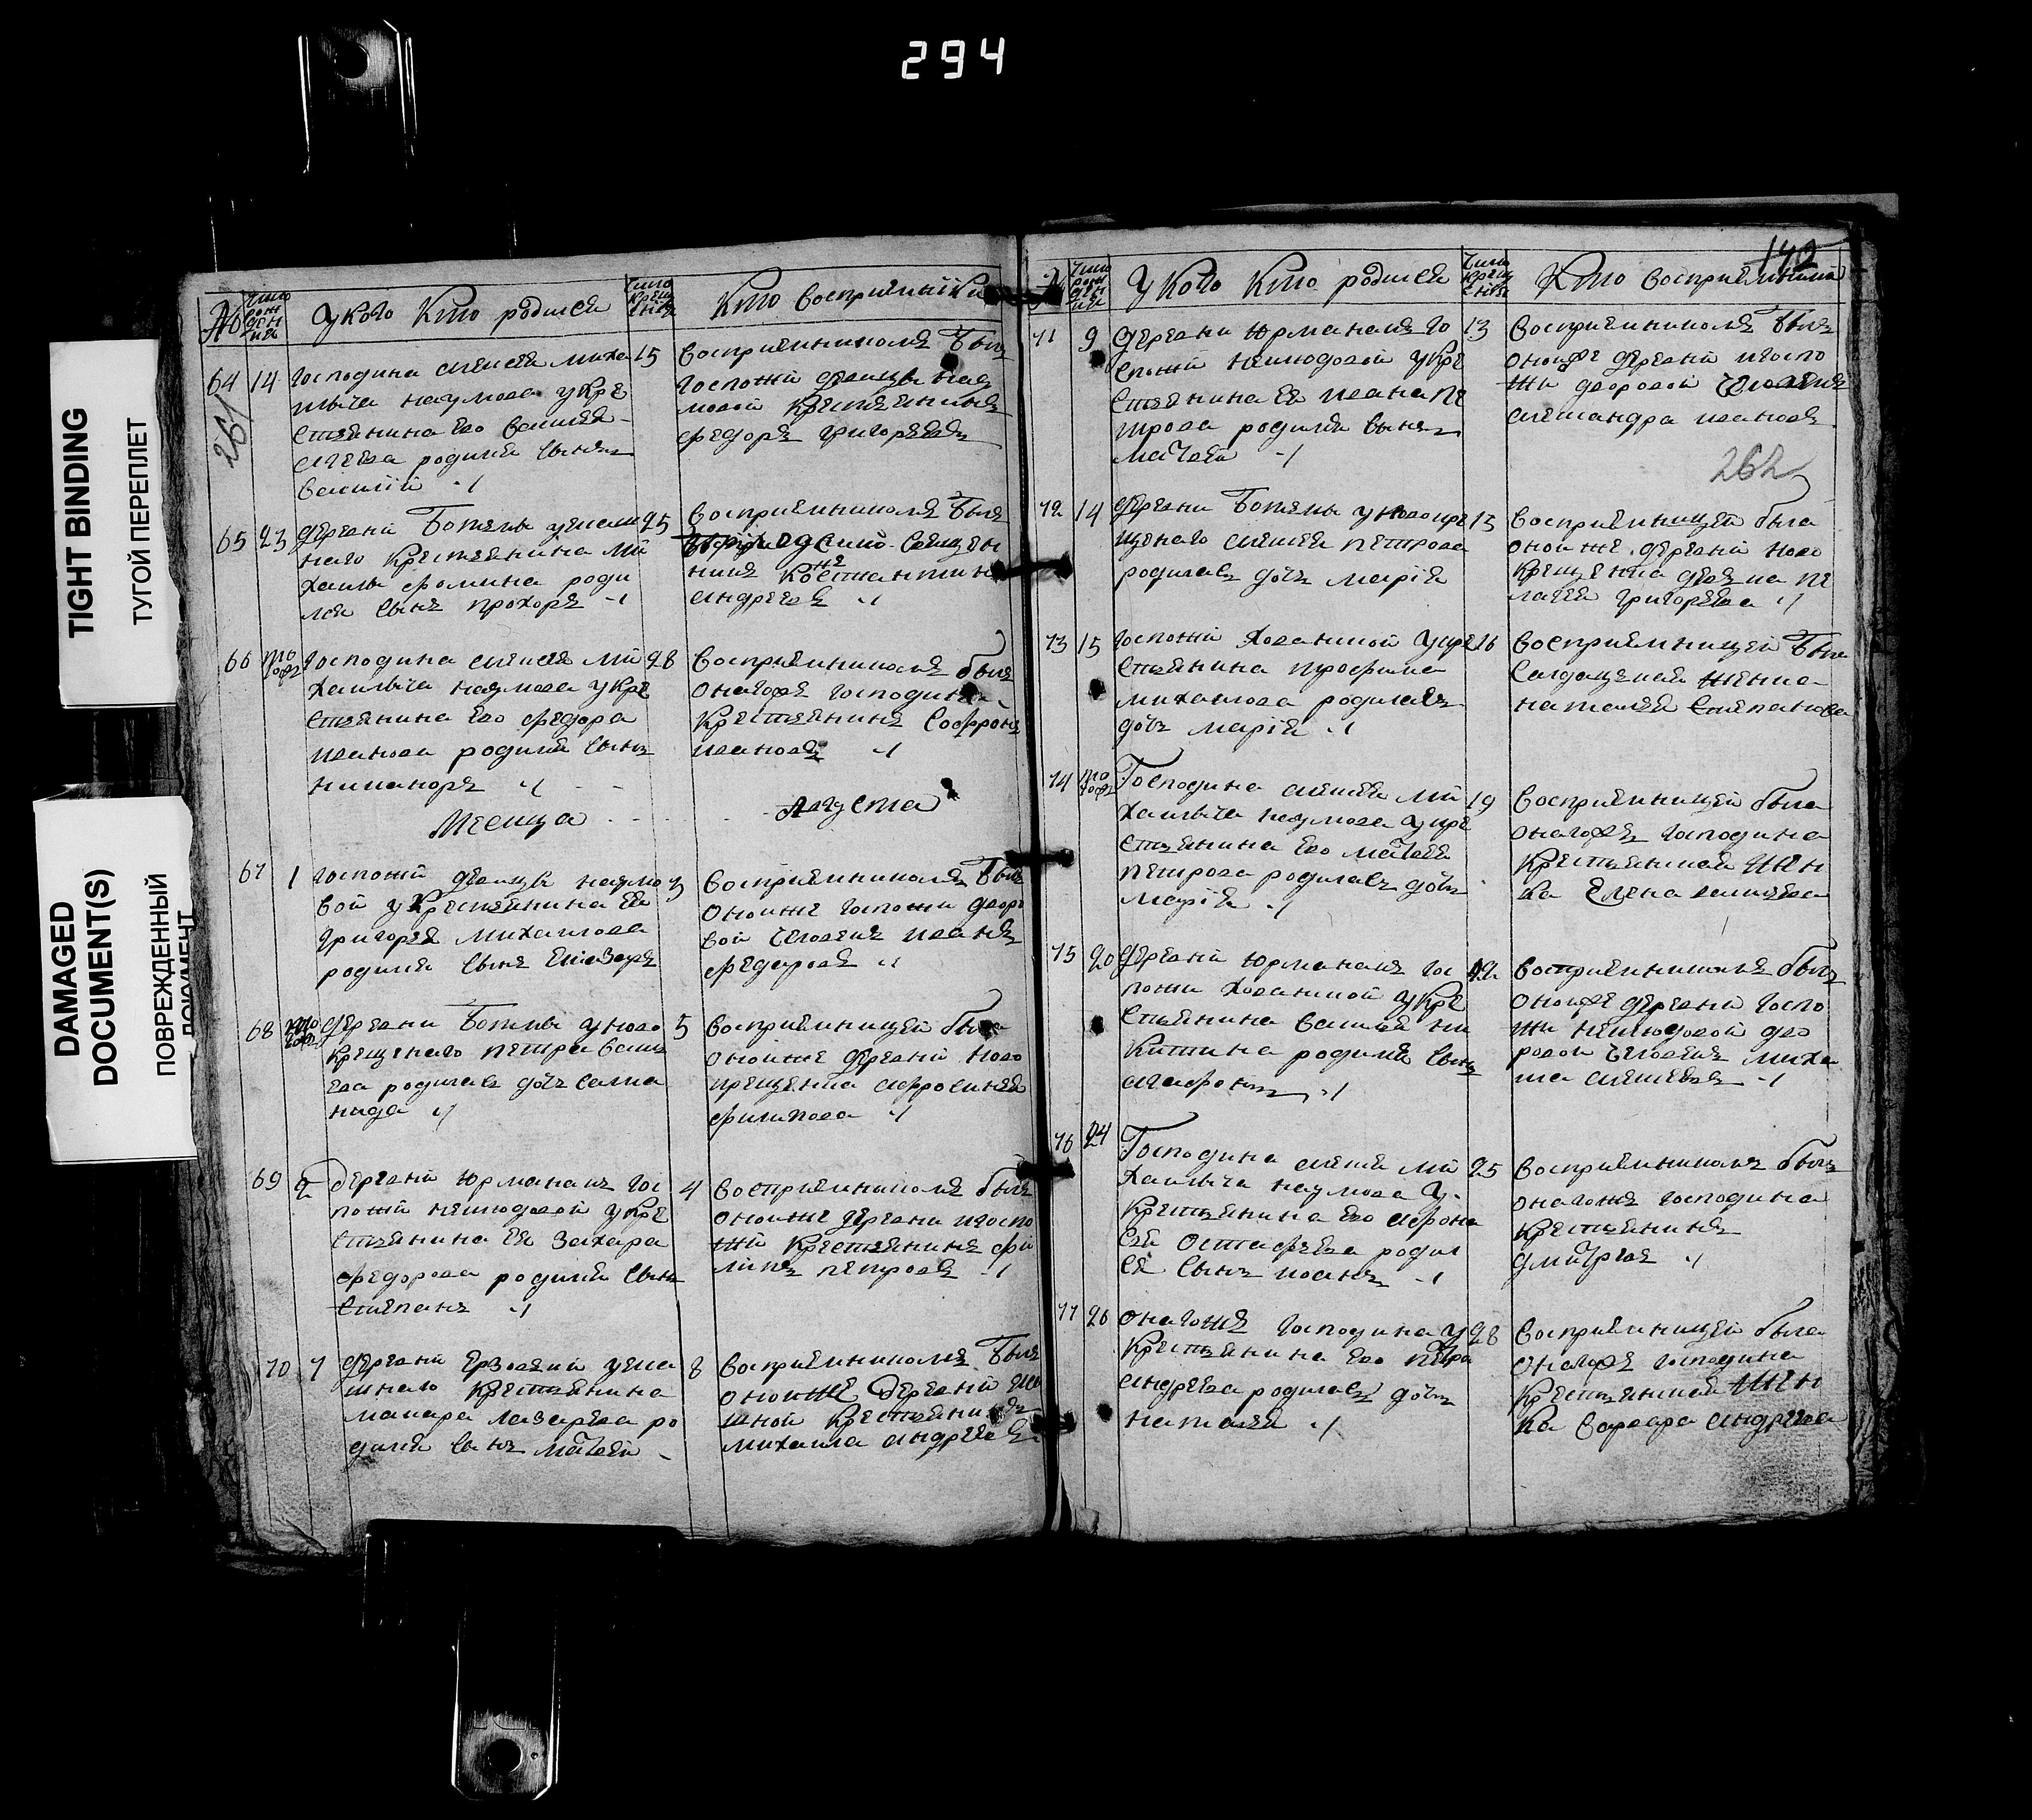 294
TIGHT BINDING
ТУГОЙ ПЕРЕПЛЕТ
DAMAGED
DOCUMENT(S)
ПОВРЕЖДЕННЫЙ
ДОКУМЕНТ
№
Число рожденія
У кого кто родился
Число крещенія
Кто восприемники
261
64 14 Господина Алексея Миха 15
иловича Наумова у кре
стьянина Его Василья
Алексева родился сынъ
Василий
Восприемникомъ былъ
госпожи девицы Нау
мовой крестьянинъ
Федоръ Григорьевъ
65 23 деревни Ботьмы у ясаш 25
наго крестьянина Ми
хаилы Фомина роди
лся сынъ Прохоръ
Восприемникомъ былъ
священ
никъ Костантин
Андреевъ
66 того Господина Алексея Ми 28
хаиловича Наумова у кре
стьянина Его Федора
Иванова родился сынъ
Никаноръ
Восприемникомъ былъ
онагожъ господина
крестьянинъ Софронъ
Ивановъ
Месяца Августа
67 1 Госпожи девицы Наумо 3
вой у крестьянина Ея
Григорья Михаилова
родился сынъ Елиазаръ
Восприемникомъ былъ
онойже госпожи дворо
вой человекъ Иванъ
Федоровъ
68 того деревни Ботьмы у ново 5
крещенаго Петра Васил
ева родилась дочь Сама
нида
Восприемницей была
онойже деревни ново
крещенка Афросинья
Филипова
69 2 деревни Юрманакъ гос 4
пожи Нелюдовой у кре
стьянина Ея Захара
Федорова родился сынъ
Степанъ
Восприемникомъ былъ
онойже деревни и госпо
жи крестьянинъ Фи
липъ Петровъ
70 7 деревни Ерзовки у яса 8
шнаго крестьянина
Макара Лазарева ро
дился сынъ Матвей
Восприемникомъ былъ
онойже деревни яса
шной крестьянинъ
Михаила Андреевъ
140
№
Число рожденія
У кого кто родился
Число крещенія
Кто восприемники
71 9 деревни Юрманакъ го 13
спожи Нелюдовой у кре
стьянина Ея Ивана Пе
трова родился сынъ
Матвей
Восприемникомъ былъ
онойже деревни и госпо
жи дворовой человекъ
Александра Ивановъ
262
72 14 деревни Ботьмы у новокре 15
щенаго Алексея Петрова
родилась дочь Марія
Восприемницей была
онойже деревни ново
крещенка девка Пе
лагея Григорьева
73 15 Госпожи Хованской у кре 16
стьянина Трофима
Михаилова родилась
дочь Марія
Восприемницей была
салдацкая женка
Наталья Степанова
74 того Господина Алексея Ми 19
хаиловича Наумова у кре
стьянина Его Матвея
Петрова родилась дочь
Марія
Восприемницей была
онагожъ господина
крестьянская жен
ка Елена Василева
75 20 деревни Юрманакъ гос 22
пожи Хованской у кре
стьянина Василья Ни
китина родился сынъ
Агафонъ
Восприемникомъ былъ
онойже деревни госпо
жи Нелюдовой дво
ровой человекъ Миха
ила Алексевъ
76 24 Господина Алексея Ми 25
хаиловича Наумова у
крестьянина Его Афона
сья Остафьева родил
ся сынъ Иоанъ
Восприемникомъ былъ
онагоже господина
крестьянинъ
Дмитрей
77 26 онагоже господина у 28
крестьянина Его Петра
Андреева родилась дочь
Наталья
Восприемницей была
онагоже господина
крестьянская жен
ка Варвара Андреева